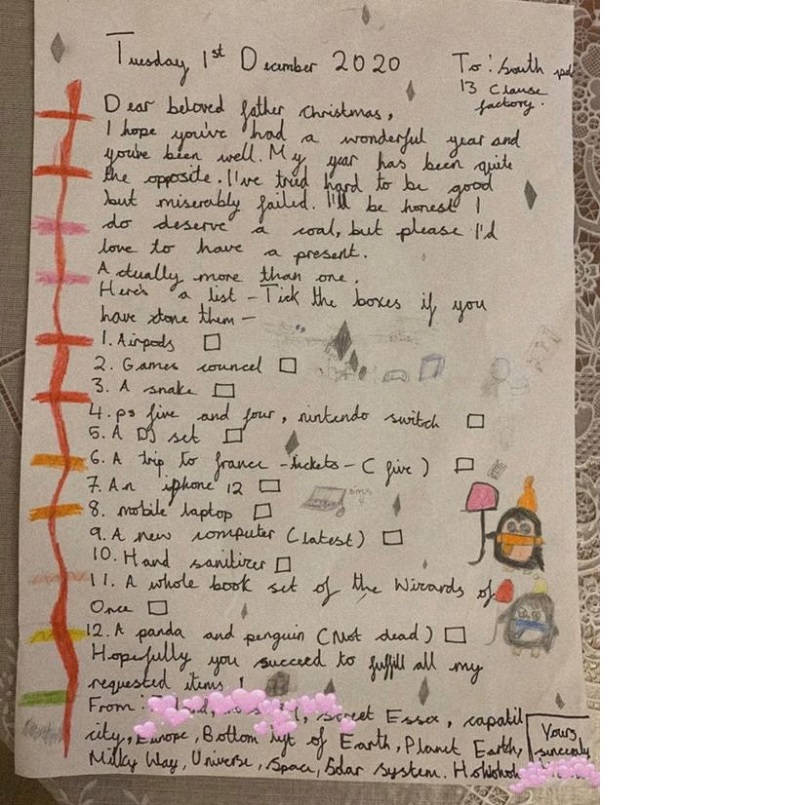 Tuesday 1st December 2020
To: South pole
13 Clause
factory.
Dear beloved father christmas,
I hope you've had a wonderful year and
you've been well. My year has been quite
the opposite. I've tried hard to be good
but miserably failed. I'll be honest I
do deserve a coal, but please I'd
love to have a present.
Actually more than one.
Here's a list - Tick the boxes if you
have done them -
1. Airpods
2. Games councel
3. A snake
4. ps five and four, nintendo switch
5. A DJ set
6. A trip to france - tickets - (five)
7. An iphone 12
8. mobile laptop
9. A new computer (latest)
10. Hand sanitizer
11. A whole book set of the Wizards of
Once
12. A panda and penguin (Not dead)
Hopefully you succeed to fulfill all my
requested items!
From: street Essex, capatil
city, Europe, Bottom of Earth, Planet Earth,
Milky Way, Universe, Space, Solar system. Hohohoh
Yours
sincerely